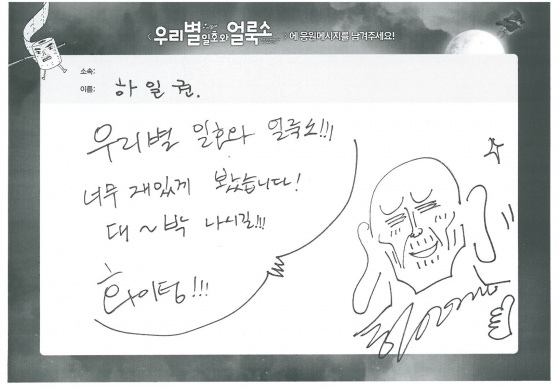 우리별 일호와 얼룩소 에 응원메시지를 남겨주세요!
소속:
이름: 하일권.
우리별 일호와 얼룩소!!!
너무 재밌게 봤습니다!
대~박 나시길!!!
화이팅!!!